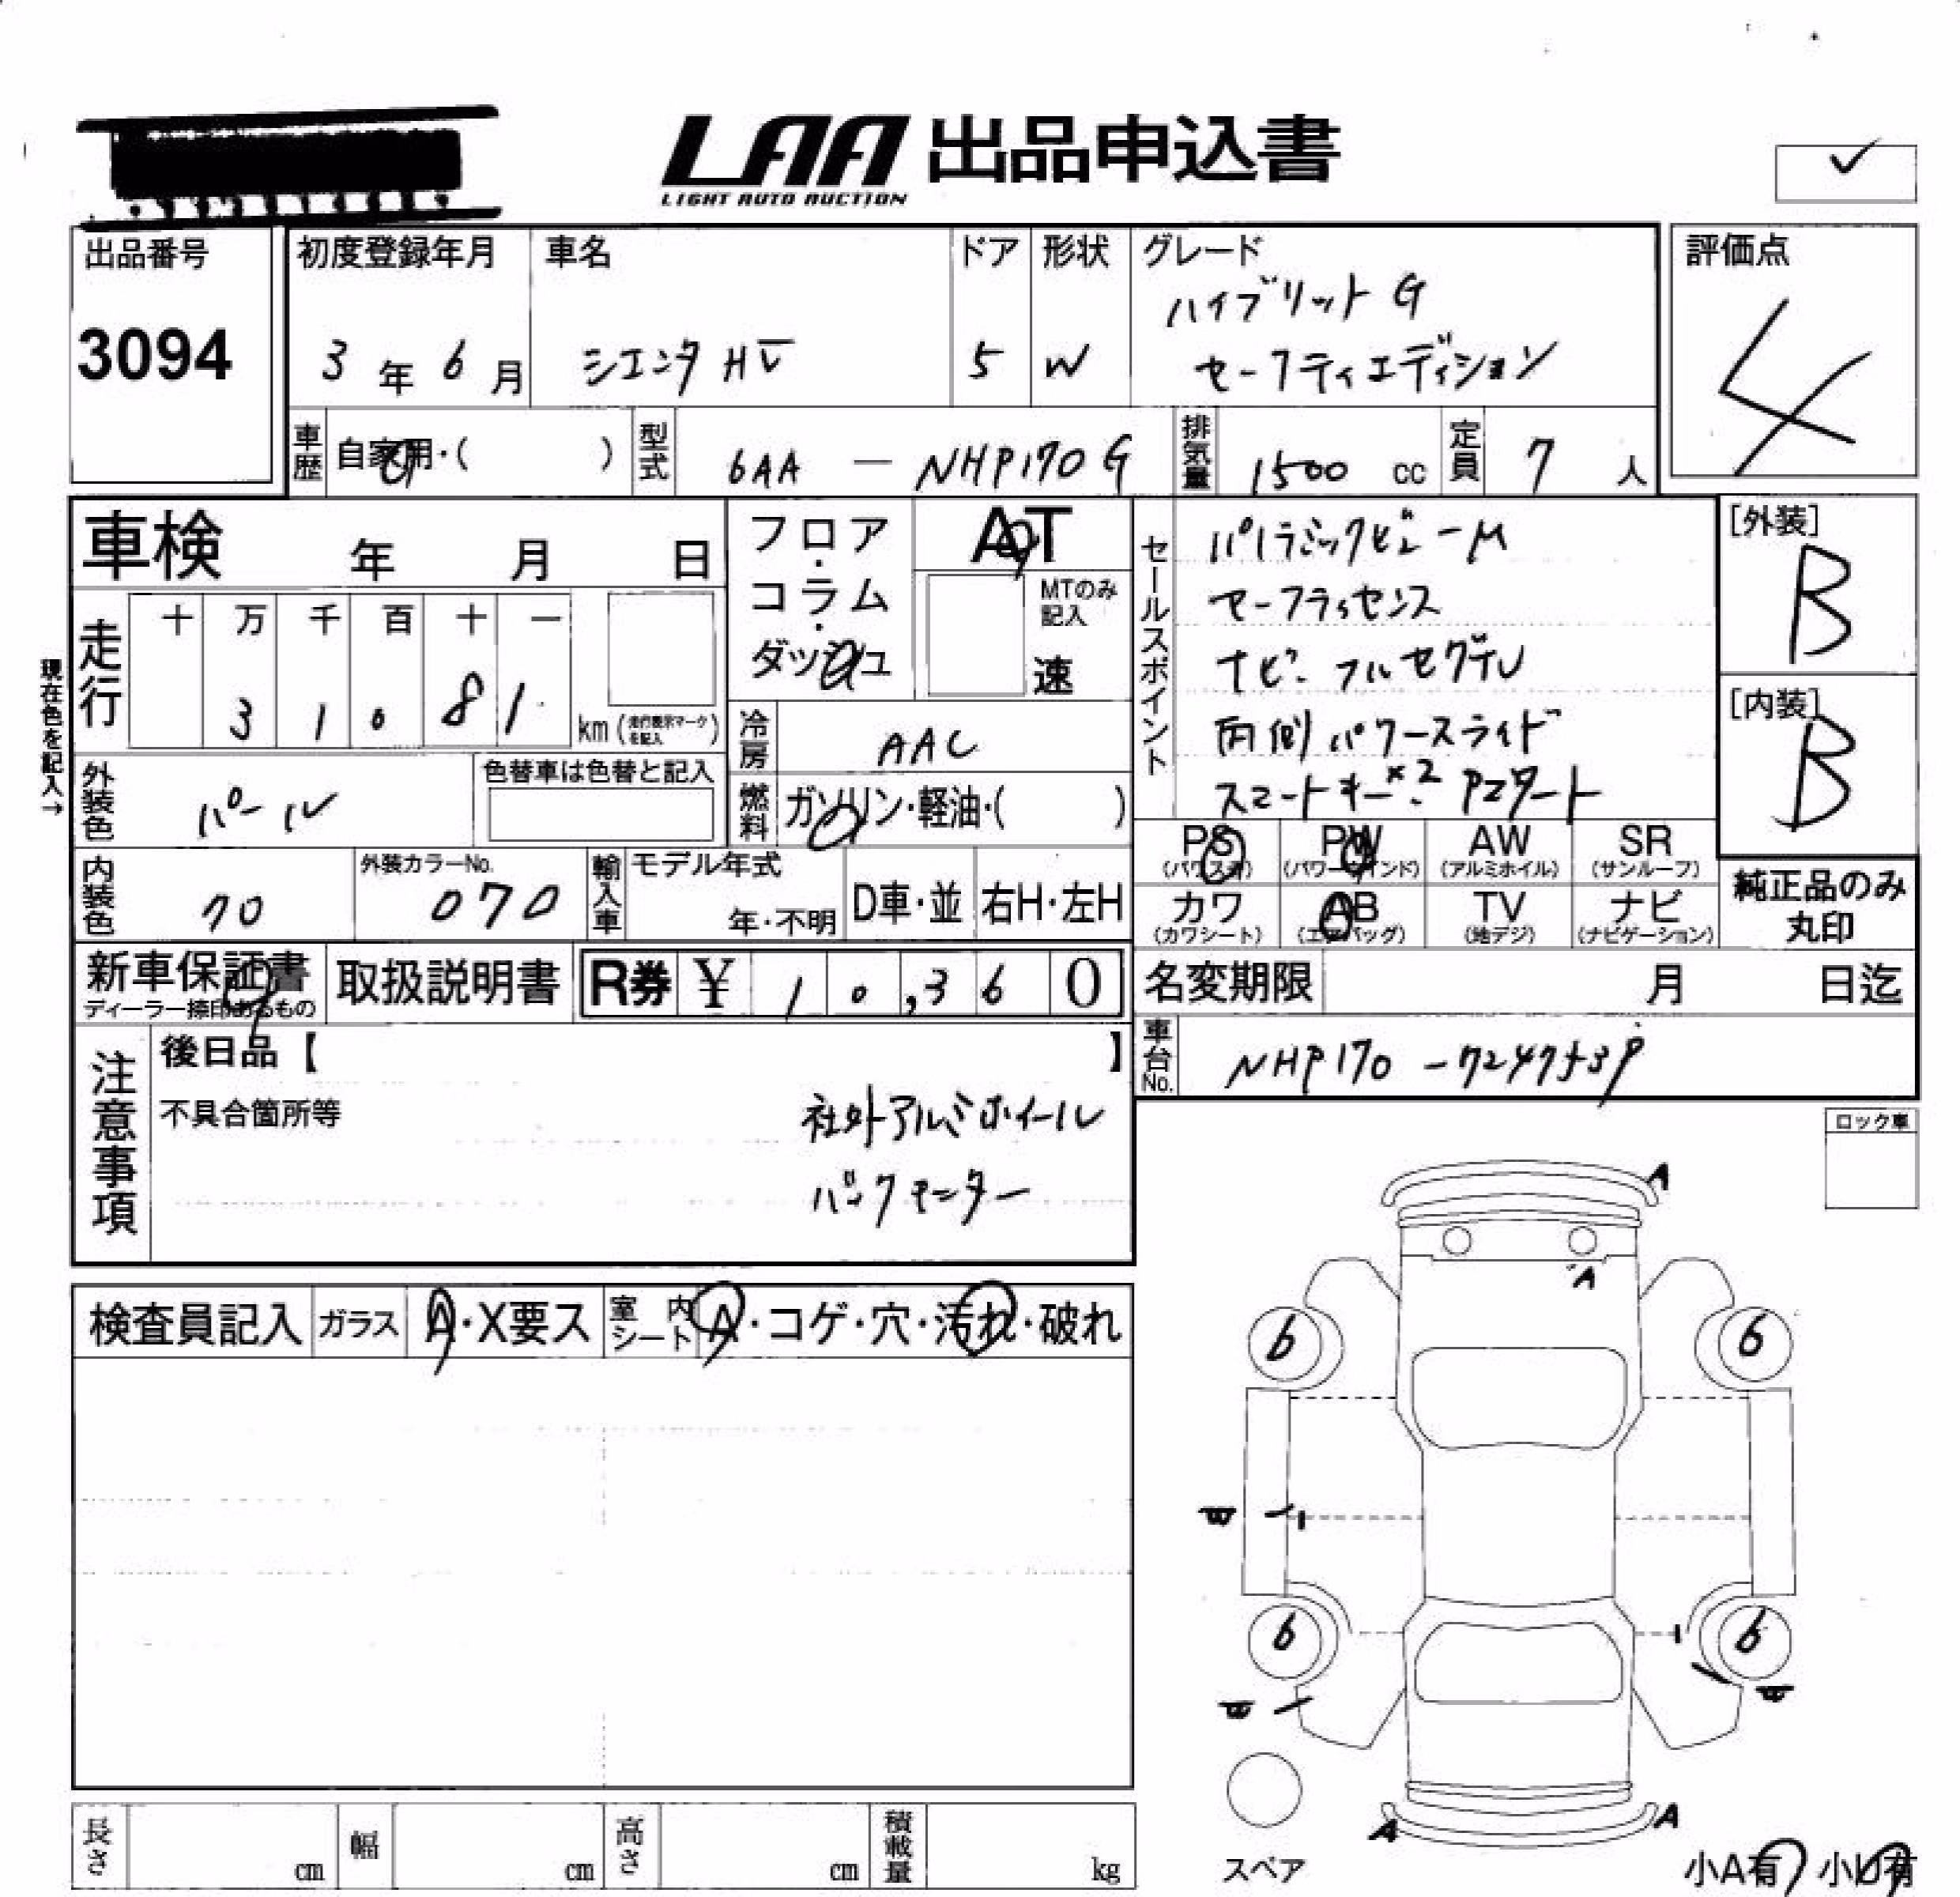 LAA 出品申込書
LIGHT AUTO AUCTION
出品番号
3094
初度登録年月
3年6月
車名
シエンタ HV
ドア
5
形状
W
グレード
ハイブリット G
セーフティエディション
評価点
4
車歴 自家用・( )
型式 6AA - NHP170G
排気量 1500 cc
定員 7 人
車検 年 月 日
フロア・コラム・ダッシュ
AT
MTのみ記入
速
セールスポイント
パノラミックビューM
セーフティセンス
ナビ フルセグTV
両側パワースライド
スマートキー×2
[外装]
B
[内装]
B
現在色を記入→
走行
十 万 千 百 十 一
3 1 0 8 1
km (走行表示マークを記入)
冷房 AAC
外装色 パール
色替車は色替と記入
燃料 ガソリン・軽油・( )
PS (パワステ)
PW (パワーウインド)
AW (アルミホイル)
SR (サンルーフ)
カワ (カワシート)
AB (エアバッグ)
TV (地デジ)
ナビ (ナビゲーション)
純正品のみ丸印
内装色
外装カラーNo.
070
輸入車
モデル年式
年・不明
D車・並
右H・左H
新車保証書
ディーラー捺印あるもの
取扱説明書
R券 ¥ 1 0,3 6 0
名変期限 月 日迄
車台No. NHP170-7247539
注意事項
後日品【 】
不具合箇所等
社外アルミホイール
バックモニター
ロック車
検査員記入
ガラス A・X要ス
室内シート A・コゲ・穴・汚れ・破れ
A
A
6 6
6 6
A A
スペア
長さ cm
幅 cm
高さ cm
積載量 kg
小A有 小U有